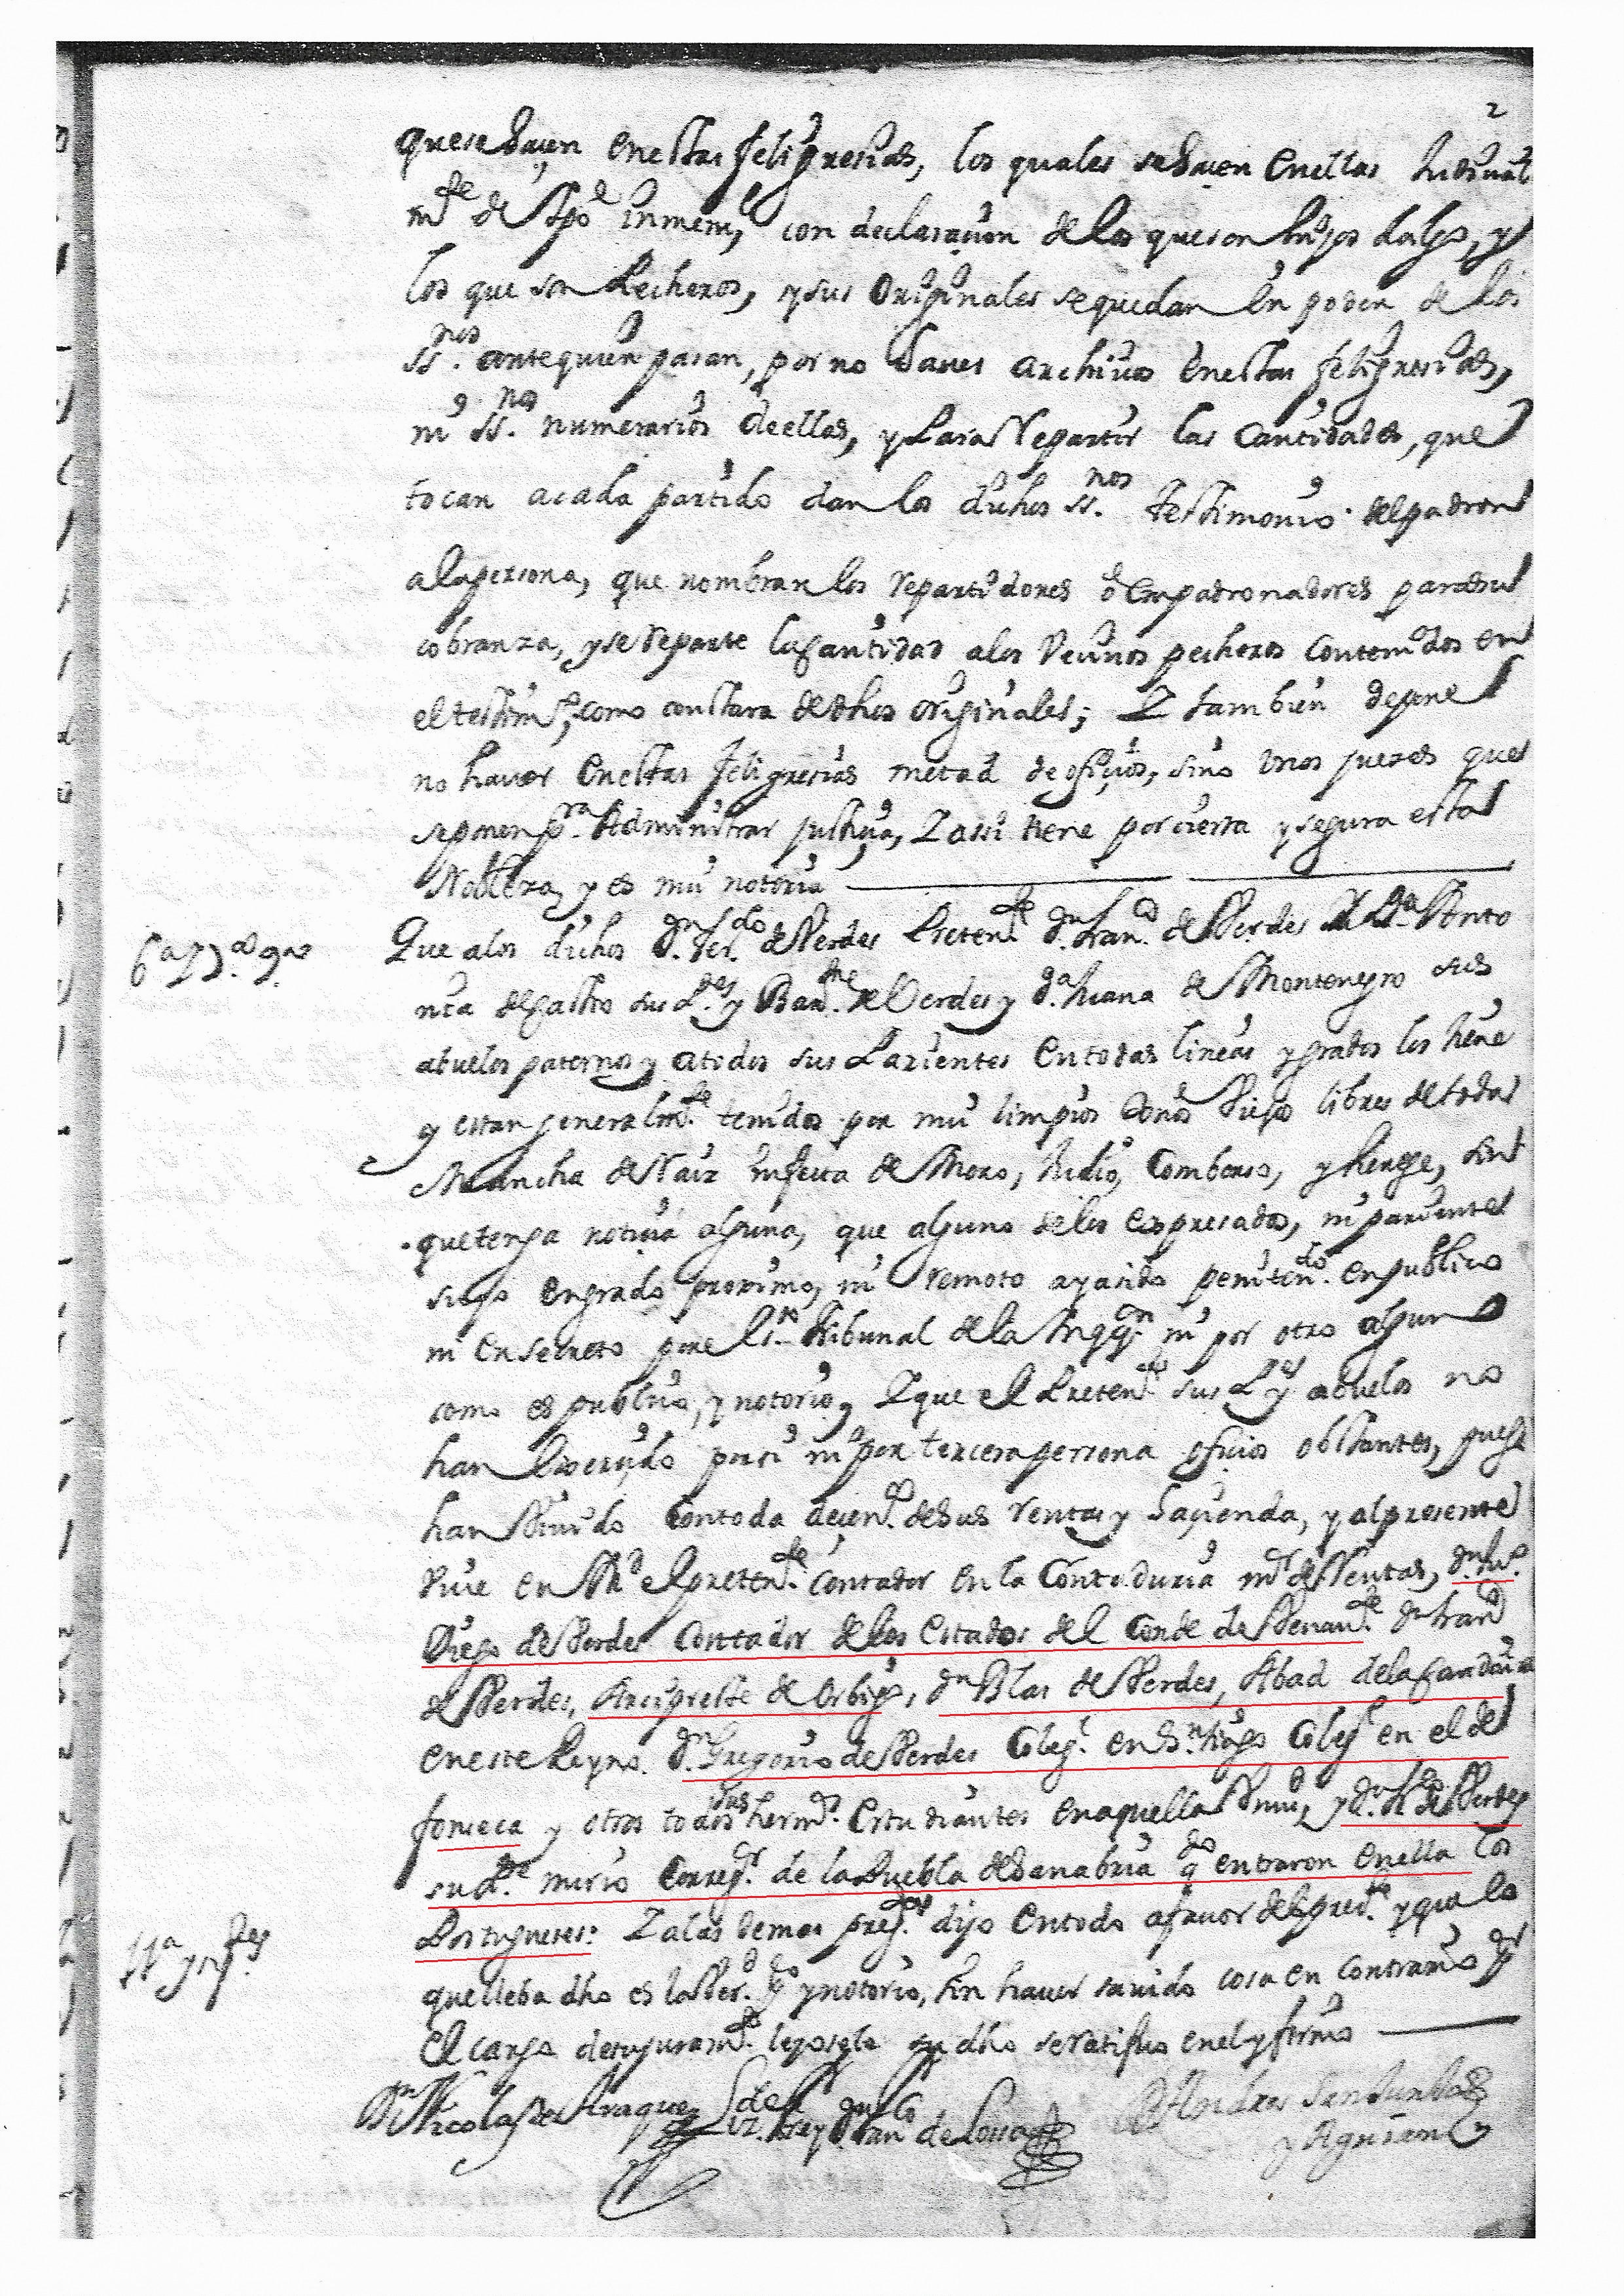 2
que se haven en estas feligresias, los quales se haven en ellas
m.te de tpo inmem.l, con declaracion de los que son hijos dalgo, y
los que son Pecheros, y sus Originales se quedan en poder de los
ss.nos ante quien pasan, por no haver archivos en estas feligresias,
ni ss.nos numerarios de ellas, y Para Repartir las Cantidades, que
tocan a cada partido dan los dichos ss.nos testimonio del padron
a la persona, que nombran los repartidores o Empadronadores para su
cobranza, y se Reparte la Cantidad a los Vecinos pecheros contenidos en
el testim.o, como constara de dhos originales; Y tambien depone
no haver en estas feligresias metad de oficios, sino unos juezes que
se ponen p.ra Administrar justicia, Y assi tiene por cierta y segura esta
Nobleza, y es mui notoria
6a 7a
Que a los dichos d.n de Verdes Preten.te d.n Fran.co de Verdes D.a Anto
nia de Castro sus P.es y de Verdes y d.a Juana de Montenegro sus
abuelos paternos y a todos sus Parientes en todas lineas y grados los tiene
y estan generalm.te tenidos por mui limpios libres de toda
Mancha de Raiz infecta de Moro, Judio, Comberso, y herege, sin
que tenga noticia alguna, que alguno de los expresados, ni pariente
suyo en grado proximo, ni remoto aya sido peniten.do en publico
ni en secreto por el S.to Tribunal de la Inqq.on ni por otro alguno
como es publico, y notorio, Y que el Preten.te sus P.es y abuelos no
han por si ni por tercera persona oficios obstantes, pues
han vivido con toda decen.a de sus rentas y haçienda, y al presente
vive en M.d el preten.te contador en la Contaduria m.r de Rentas, d.n
Diego de Verdes Contador de los Estados del Conde de Benav.te d.n Fran.co
de Verdes, Arcipreste de Orbigo, d.n Blas de Verdes, Abad de la
en este Reyno. d.n Gregorio de Verdes Coleg.l en S.ntiago Coleg.l en el de
fonseca y otros todos sus herm.os Estudiantes en aquella Univ.d, y d.n de Verdes
su murio Correg.or de la Puebla de Sanabria q.do entraron en ella los
Portugueses: Y a las demas preg.tas dijo en todo a favor del y que lo
11a y
que lleba dho es la Ver.d y notorio, sin haver savido cosa en contrario
el cargo de su juram.to leyosele su dho se ratifico en el y firmo
D.n Nicolas de Araque Liz.do Frey d.n Fran.co de Andres
y Aguiar